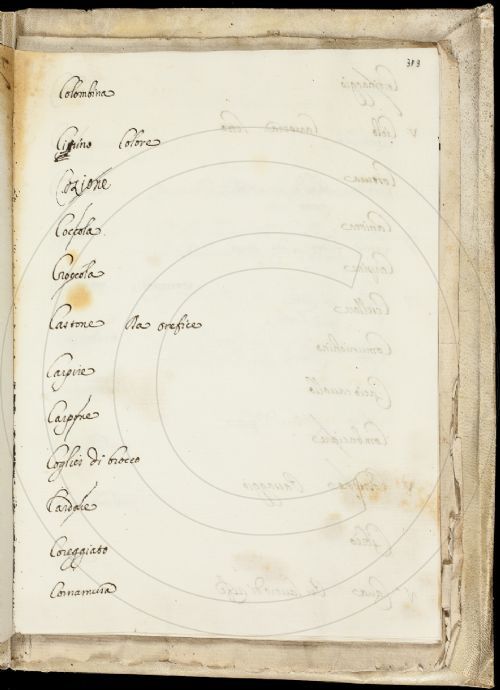 313
Colombina
Colore
Cozione
Coccola.
Chioccola
Castone da orefice
Carpire
Carpone
Coglier di brocco
Cardare
Coreggiato
Cornamusa